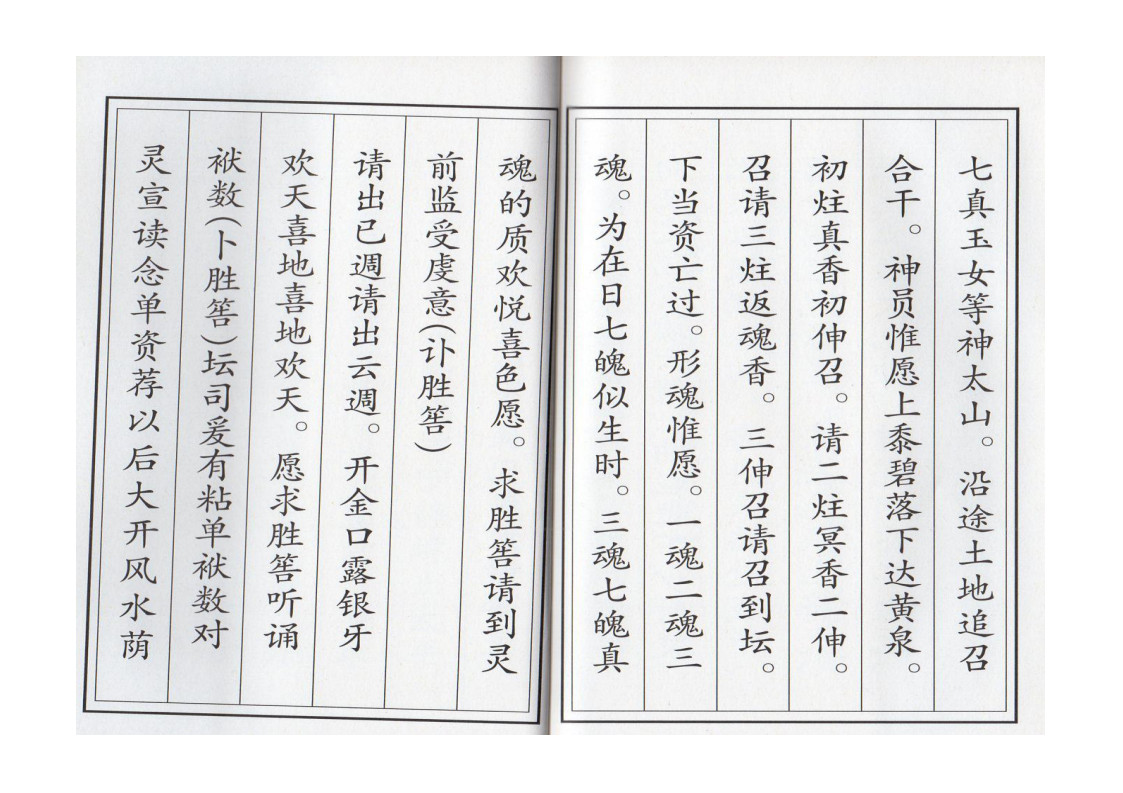 七真玉女等神太山。沿途土地追召
合干。神员惟愿上黍碧落下达黄泉。
初炷真香初伸召。请二炷冥香二伸。
召请三炷返魂香。三伸召请召到坛。
下当资亡过。形魂惟愿。一魂二魂三
魂。为在日七魄似生时。三魂七魄真
魂的质欢悦喜色愿。求胜筶请到灵
前监受虔意(讣胜筶)
请出已週请出云週。开金口露银牙
欢天喜地喜地欢天。愿求胜筶听诵
袱数(卜胜筶)坛司爰有粘单袱数对
灵宣读念单资荐以后大开风水荫